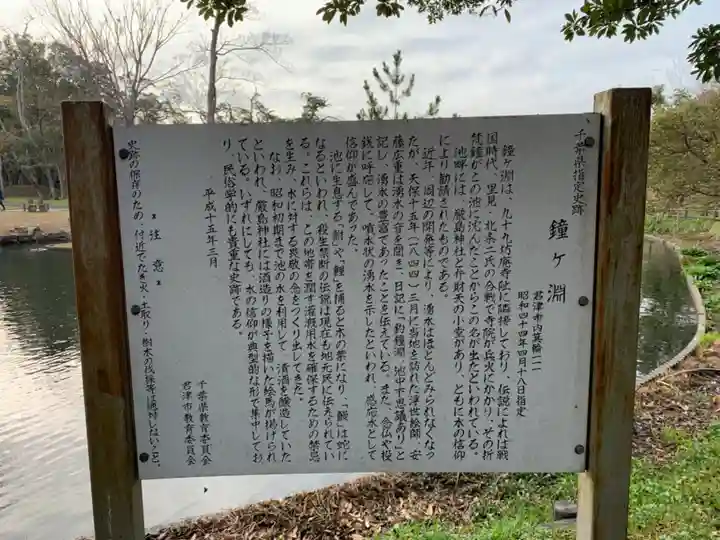 千葉県指定史跡
鐘ヶ淵
君津市内箕輪一一
昭和四十四年四月十八日指定
鐘ヶ淵は、九十九坊廃寺阯に隣接しており、伝説によれば戦
国時代、里見・北条二氏の合戦で寺院が兵火にかかり、その折
梵鐘がこの池に沈んだことからこの名が出たといわれている。
池畔には、厳島神社と弁財天の小堂があり、ともに水の信仰
により勧請されたものである。
近年、周辺の開発等により、湧水はほとんどみられなくなっ
たが、天保十五年(一八四四)三月に当地を訪れた浮世絵師、安
藤広重は湧水の音を聞き、日記に「釣鐘淵、池中不思議あり」と
記し、湧水の豊富であったことを伝えている。また、念仏や投
銭に呼応して、噴水状の湧水を示したといわれ、感応水として
信仰が盛んであった。
池に生息する「鮒」や「鯉」を捕ると木の葉になり、「鰻」は蛇に
なるといわれ、殺生禁断の伝説は現在も地元民に伝えられてい
る。これらは、この地帯を潤す灌漑用水を確保するための禁忌
を生み、水に対する畏敬の念をつくり出してきた。
なお、昭和初期まで池の水を利用して、清酒を醸造していた
といわれ、厳島神社には酒造りの様子を描いた絵馬が掲げられ
ている。いずれにしても、水の信仰が典型的な形で集中してお
り、民俗学的にも貴重な史跡である。
平成十五年三月
千葉県教育委員会
君津市教育委員会
注意
史跡の保存のため、付近でたき火・土取り・樹木の伐採等は絶対しないこと。